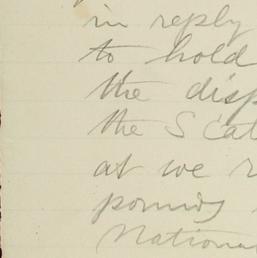 in reply
to hold
the disp
the Scat
at we r
pounds
Nationa